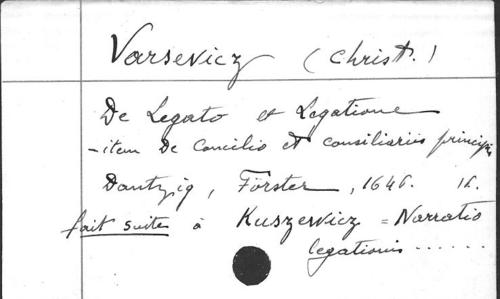 Varsevicz (Christ.)
De Legato et Legatione
- item De Concilio et consiliariis principis
Dantzig, Förster, 1646. 12.
fait suite à Kuszewicz = Narratio
legationis ......